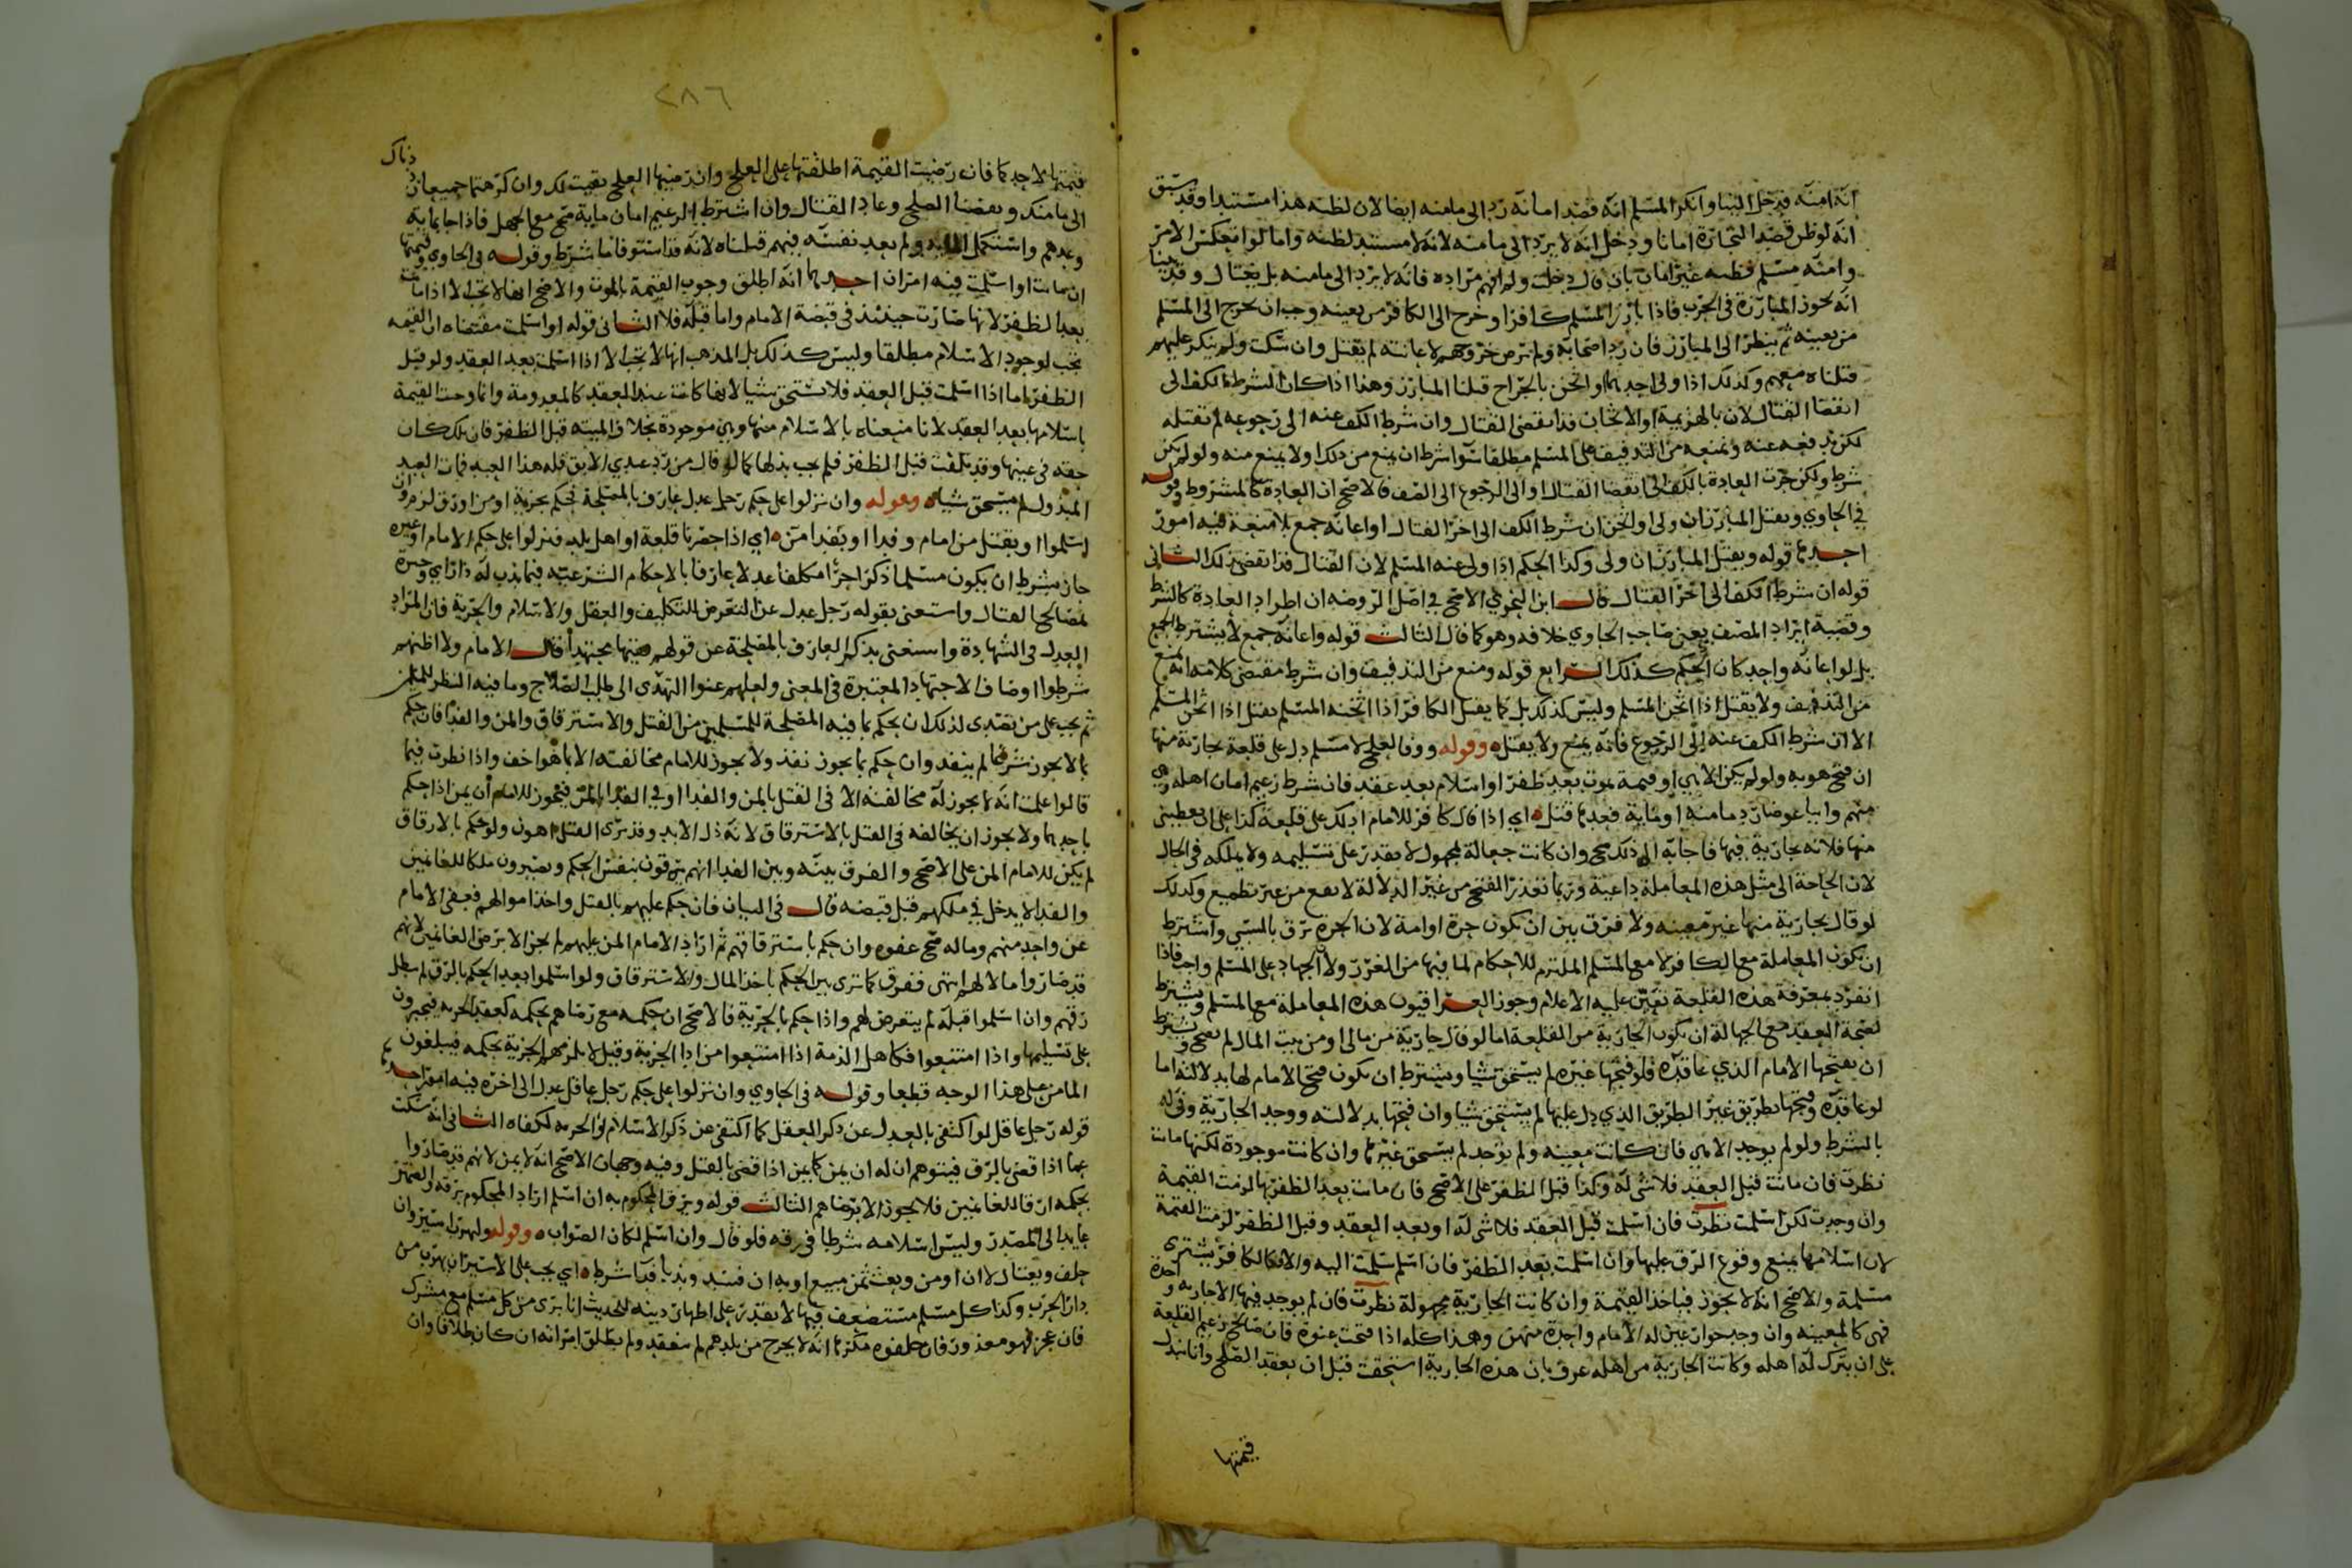 انه امنه فدخل الينا وانكر المسلم انه قصد امانه رد الى مامنه ايضا لان لظنه هذا مستندا وقد سبق
انه لو ظن قصد التجارة امانا ودخل انه لا يرد الى مامنه لانه لا مستند لظنه واما لو انعكس الامر
وامنه مسلم فظنه غير امان بان قال دخلت ولم افهم مراده فانه لا يرد الى مامنه بل يغتال وقدمنا
انه تجوز المبارزة في الحرب فاذا بارز المسلم كافرا وخرج الى الكافر من يعينه وجب ان نخرج الى المسلم
من يعينه ثم ينظر الى المبارز فان رد اصحابه ولم يرض خروجهم لاعانته لم يقتل وان سكت ولم ينكر عليهم
قتلناه معهم وكذلك اذا ولى احدهما او اثخن بالجراح قتلنا المبارز وهذا اذا كان الشرط الكف الى
انقضا القتال لان بالهزيمة او الاثخان قد انقضى القتال وان شرط الكف عنه الى رجوعه لم نقتله
لكن ندفعه عنه ونمنعه من التدفيف على المسلم مطلقا سوا شرط ان يمنع من ذلك او لا يمنع منه ولو لم يكن
شرط ولكن جرت العادة بالكف الى انقضا القتال او الى الرجوع الى الصف فالاصح ان العادة كالمشروط وقوله
في الحاوي ويقتل المبارز ان ولى او اثخن ان شرط الكف الى اخر القتال او اعانه جمع بلا منعه فيه امور
احدها قوله ويقتل المبارز ان ولى وكذا الحكم اذا ولى عنه المسلم لان القتال قد انقضى بذلك الثاني
قوله ان شرط الكف الى اخر القتال قال ابن النحوي الاصح في اصل الروضه ان اطراد العادة كالشرط
وقضية ايراد المصنف يعني صاحب الحاوي خلافه وهو كما قال الثالث قوله واعانه جمع لا يشترط الجمع
بل لو اعانه واحد كان الحكم كذلك الرابع قوله ومنع من التدفيف وان شرط مقتضى كلامه انه يمنع
من التدفيف ولا يقتل اذا اثخن المسلم وليس كذلك بل كما يقتل الكافر اذا اثخنه المسلم يقتل اذا اثخن المسلم
الا ان شرط الكف عنه الى الرجوع فانه يمنع ولا يقتل وقوله ووفا لعلج لا مسلم دل على قلعة بجارية منها
ان فتح هو به ولو لم يكن الا هي او قيمة بموت بعد ظفر او اسلام بعد عقد فان شرط زعيم امان اهله وهي
منهم وابيا عوضا رد مامنه او ماية فعدها قتل اي اذا قال كافر للامام ادلك على قلعة كذا على ان تعطيني
منها فلانه بجارية فيها فاجابه الى ذلك صح وان كانت جعالة بمجهول لا يقدر على تسليمه ولا يملكه في الحال
لان الحاجة الى مثل هذه المعاملة داعية وربما تعذر الفتح من غير الدلالة لا تقع من غير تطميع وكذلك
لو قال بجارية منها غير معينه ولا فرق بين ان تكون حرة او امة لان الحرة ترق بالسبي واشترط
ان تكون المعاملة مع الكافر لا مع المسلم الملتزم للاحكام لما فيها من الغرر ولان الجهاد على المسلم واجب فاذا
انفرد بمعرفة هذه القلعة تعين عليه الاعلام وجوز العراقيون هذه المعاملة مع المسلم ويشترط
لصحة العقد مع الجهالة ان تكون الجارية من القلعة اما لو قال جارية من مالي او من بيت المال لم يصح ويشترط
ان يفتحها الامام الذي عاقده فلو فتحها غيره لم يستحق شيا ويشترط ان يكون فتح الامام لها بدلالته اما
لو عاقده وفتحها بطريق غير الطريق الذي دل عليها لم يستحق شيا وان فتحها بدلالته ووجد الجارية وفى له
بالشرط ولو لم يوجد الا هي فان كانت معينه ولم توجد لم يستحق غيرها وان كانت موجودة لكنها ماتت
نظرت فان ماتت قبل العقد فلا شي له وكذا قبل الظفر على الاصح فان ماتت بعد الظفر بها لزمت القيمة
وان وجدت لكن اسلمت نظرت فان اسلمت قبل العقد فلا شي له او بعد العقد وقبل الظفر لزمت القيمة
لان اسلامها يمنع وقوع الرق عليها وان اسلمت بعد الظفر فان اسلم سلمت اليه والا فكالكافر يشتري
مسلمة والاصح انه لا يجوز فياخذ القيمة وان كانت الجارية مجهولة نظرت فان لم يوجد فيها الا جارية واحدة
فهي كالمعينه وان وجد جوار عين له الامام واحدة منهن وهذا كله اذا فتحت عنوة فان صالح زعيم القلعة
على ان يترك له اهله وكانت الجارية من اهله عرف بان هذه الجارية استحقت قبل ان يعقد الصلح وانا نبذل
قيمتها
٢٨٦
قيمتها لاحدكما فان رضيت القيمة اطلقتها على العلج وان رضيها العلج بقيت لك وان كرهتما جميعا رددناك
الى مامنك ونقضنا الصلح وعاد القتال وان اشترط الزعيم امان ماية صح مع الجهل فاذا جا بماية
وعدهم واستكمل الماية ولم يعد نفسه فيهم قتلناه لانه قد استوفا ما شرط وقوله في الحاوي وقيمتها
ان ماتت او اسلمت فيه امران احدهما انه اطلق وجوب القيمة بالموت والاصح انها لا تجب الا اذا ماتت
بعد الظفر لانها صارت حينئذ في قبضة الامام واما قبله فلا الثاني قوله او اسلمت مقتضاه ان القيمه
تجب لوجود الاسلام مطلقا وليس كذلك بل المذهب انها لا تجب الا اذا اسلمت بعد العقد ولو قبل
الظفر اما اذا اسلمت قبل العقد فلا يستحق شيا لانها كانت عند العقد كالمعدومة وانما وجبت القيمة
باسلامها بعد العقد لانا منعناه بالاسلام منها وهي موجودة بخلاف الميته قبل الظفر فان ملك كان
حقه في عينها وقد تلفت قبل الظفر فلم يجب بذلها كما لو قال من رد عبدي الابق فله هذا العبد فمات العبد
المبذول لم يستحق شيا وقوله وان نزلوا على حكم رجل عدل عارف بالمصلحة فحكم بجزية او من او رق لزم وان
اسلموا او بقتل من امام وفدا او بفدا من اي اذا حصرنا قلعة او اهل بلد فنزلوا على حكم الامام او غيره
جاز بشرط ان يكون مسلما ذكرا حرا مكلفا عدلا عارفا بالاحكام الشرعيه فيما ندب له ذا راي وخبرة
بمصالح القتال واستغنى بقوله رجل عدل عن التعرض للتكليف والعقل والاسلام والحرية فان المراد
العدل في الشهادة واستغنى بذكر العارف بالمصلحة عن قولهم فقيها مجتهدا قال الامام ولا اظنهم
شرطوا اوصاف الاجتهاد المعتبرة في المفتي ولعلهم عنوا التهدي الى طلب الصلاح وما فيه النظر للمسلمين
ثم يجب على من تصدى لذلك ان يحكم بما فيه المصلحة للمسلمين من القتل والاسترقاق والمن والفدا فان حكم
بما لا يجوز شرعا لم ينفذ وان حكم بما يجوز نفذ ولا يجوز للامام مخالفته الا بما هو اخف واذا نظرت فيما
قالوا علمت انه لا يجوز له مخالفته الا في القتل بالمن والفدا او في الفدا بالمن فيجوز للامام ان يمن اذا حكم
باحدهما ولا يجوز ان يخالفه في القتل بالاسترقاق لانه ذل الابد وقد يرى القتل اهون ولو حكم بالارقاق
لم يكن للامام المن على الاصح والفرق بينه وبين الفدا انهم يرقون بنفس الحكم ويصيرون ملكا للغانمين
والفدا لا يدخل في ملكهم قبل قبضه قال في البيان فان حكم عليهم بالقتل واخذ اموالهم فعفى الامام
عن واحد منهم وماله صح عفوه وان حكم باسترقاقهم ثم اراد الامام المن عليهم لم يجز الا برضى الغانمين لانهم
قد صاروا مالا لهم انتهى ففرق كما ترى بين الحكم باخذ المال والاسترقاق ولو اسلموا بعد الحكم بالرق لم يبطل
رقهم وان اسلموا قبله لم يتعرض لهم واذا حكم بالجزية فالاصح ان حكمه مع رضاهم بحكمه كعقد الجزيه فيجبرون
على تسليمها واذا امتنعوا فكاهل الذمة اذا امتنعوا من ادا الجزية وقيل لا يلزمهم الجزية بحكمه فيبلغون
المامن على هذا الوجه قطعا وقوله في الحاوي وان نزلوا على حكم رجل عاقل عدل الى اخره فيه امور احدها
قوله رجل عاقل لو اكتفى بالعدل عن ذكر العقل كما اكتفى عن ذكر الاسلام والحريه لكفاه الثاني انه سكت
عما اذا قضى بالرق فيتوهم ان له ان يمن كما يمن اذا قضى بالقتل وفيه وجهان الاصح انه لا يمن لانهم قد صاروا
بحكمه ارقا للغانمين فلا يجوز الا برضاهم الثالث قوله ويرق المحكوم به ان اسلم اراد المحكوم برقه والضمير
عايد الى المصدر وليس اسلامه شرطا في رقه فلو قال وان اسلم لكان الصواب وقوله وليهرب اسير وان
حلف ويغتال لا ان اومن وبعث ثمن مبيع او به ان فسد وندبا فدا شرط اي يجب على الاسير ان يهرب من
دار الحرب وكذا كل مسلم مستضعف فيها لا يقدر على اظهار دينه للحديث انا بري من كل مسلم مع مشرك
فان عجز فهو معذور فان حلفوه مكرها انه لا يخرج من بلدهم لم ينعقد ولم يطلق امراته ان كان طلاقا وان